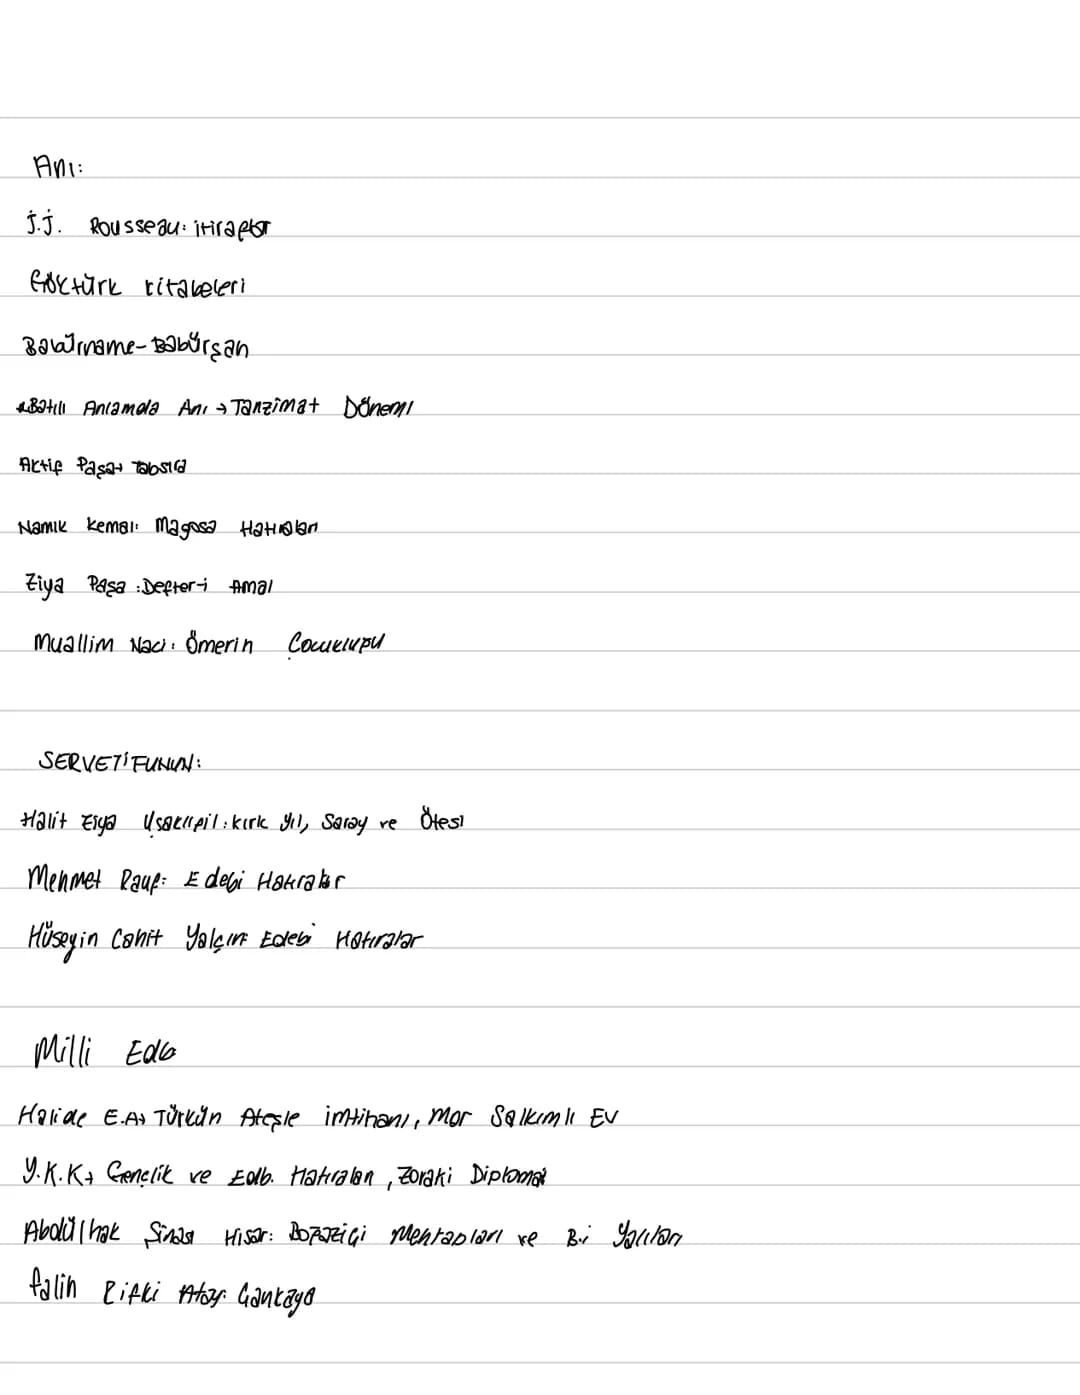 Anı:
J.J. Rousseau: itiraflar
Göktürk kitabeleri
Babürname-Babürşah
*Batılı Anlamda Anı → Tanzimat Dönemi
Aktif Paşa→ Tabsıra
Namık Kemal: Magosa Hatıraları
Ziya Paşa: Defter-i Amal
Muallim Naci: Ömerin Çocukluğu
SERVETİFUNUN:
Halit Ziya Uşaklıgil: kırk yıl, Saray ve Ötesi
Mehmet Rauf: Edebi Hatıralar
Hüseyin Cahit Yalçın: Edebi Hatıralar
Milli Edb
Halide E.A→ Türkün Ateşle imtihanı, Mor Salkımlı EV
Y.K.K→ Gençlik ve Edb. Hatıraları, Zoraki Diplomat
Abdülhak Şinasi Hisar: Boğaziçi Mehtapları ve Bi Yalıları
falih Rıfkı Atay: Çankaya